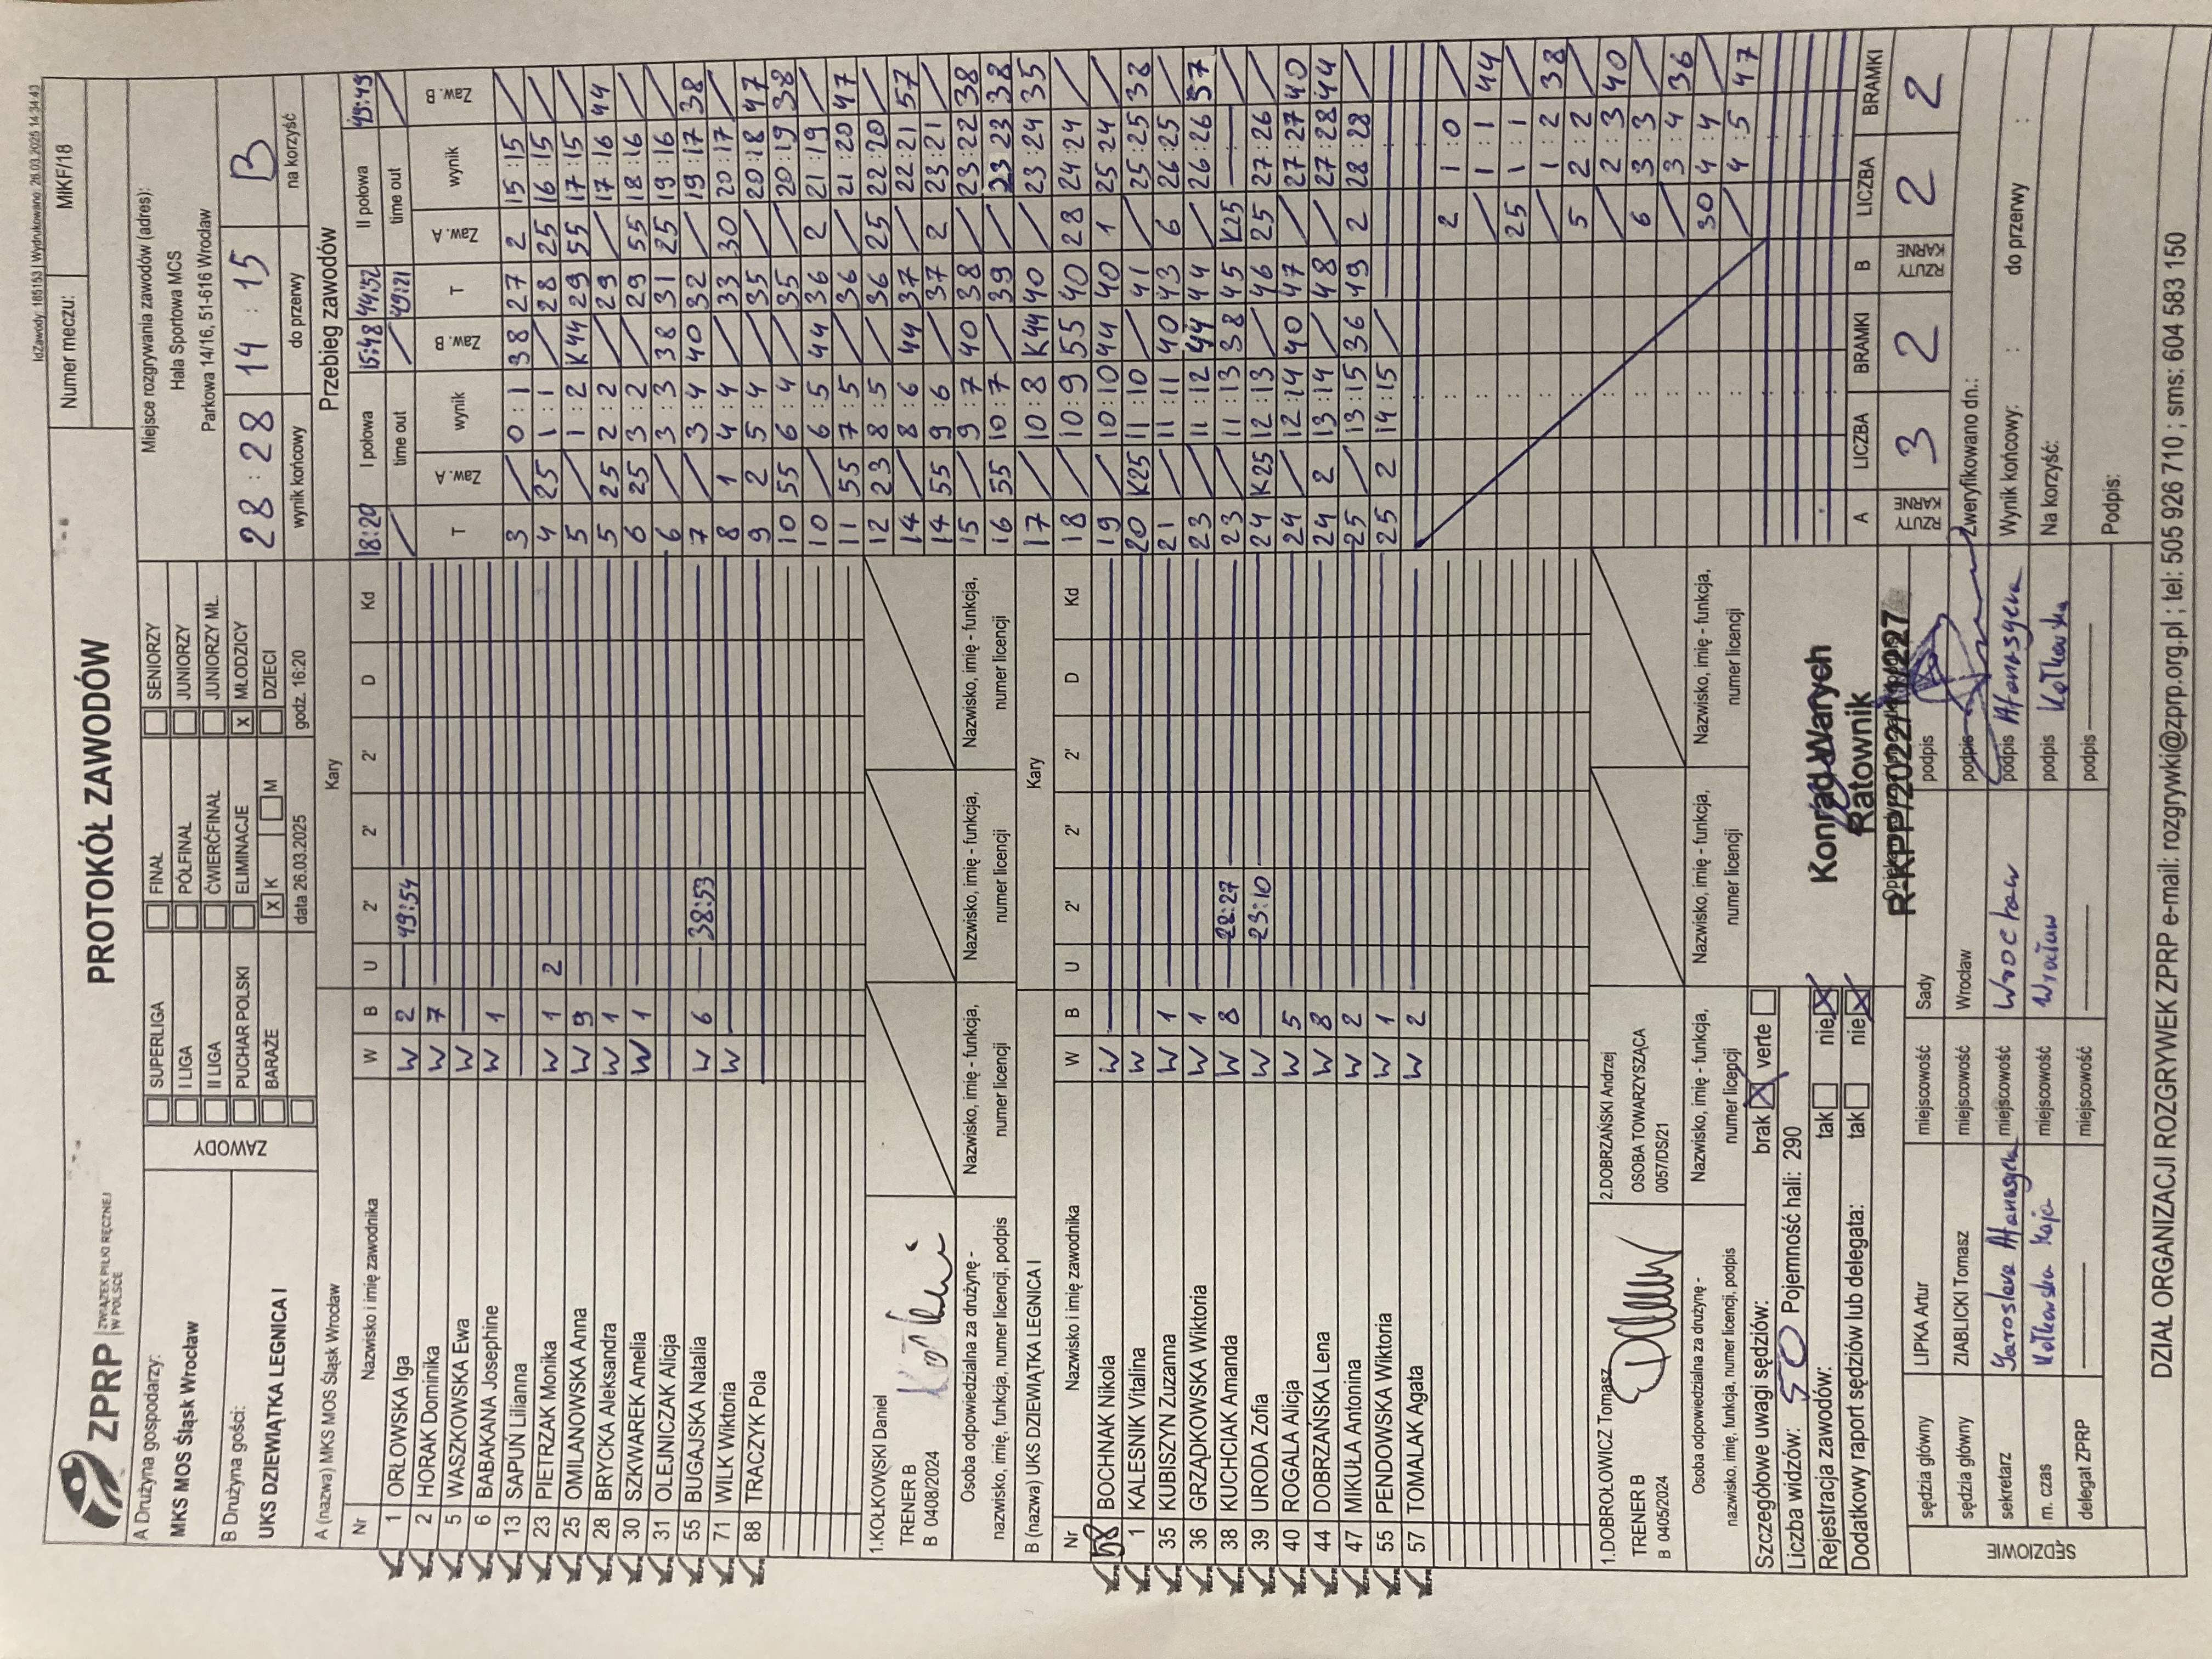 IdZawody: 185153 | Wydrukowano: 26.03.2025 14:34:43
ZPRP ZWIĄZEK PIŁKI RĘCZNEJ W POLSCE
PROTOKÓŁ ZAWODÓW
Numer meczu: MIKF/18
A Drużyna gospodarzy:
MKS MOS Śląsk Wrocław
B Drużyna gości:
UKS DZIEWIĄTKA LEGNICA I
ZAWODY
SUPERLIGA FINAŁ SENIORZY
I LIGA PÓŁFINAŁ JUNIORZY
II LIGA ĆWIERĆFINAŁ JUNIORZY MŁ.
PUCHAR POLSKI ELIMINACJE X MŁODZICY
BARAŻE X K M DZIECI
data 26.03.2025 godz. 16:20
Miejsce rozgrywania zawodów (adres):
Hala Sportowa MCS
Parkowa 14/16, 51-616 Wrocław
28 : 28 14 : 15 B
wynik końcowy do przerwy na korzyść
A (nazwa) MKS MOS Śląsk Wrocław Kary
Nr Nazwisko i imię zawodnika W B U 2' 2' 2' D Kd
1 ORŁOWSKA Iga W 2 49:54
2 HORAK Dominika W 7
5 WASZKOWSKA Ewa W
6 BABAKANA Josephine W 1
13 SAPUN Lilianna
23 PIETRZAK Monika W 1 2
25 OMILANOWSKA Anna W 9
28 BRYCKA Aleksandra W 1
30 SZKWAREK Amelia W 1
31 OLEJNICZAK Alicja
55 BUGAJSKA Natalia W 6 38:53
71 WILK Wiktoria W
88 TRACZYK Pola
1.KOŁKOWSKI Daniel
TRENER B
B 0408/2024
Osoba odpowiedzialna za drużynę -
nazwisko, imię, funkcja, numer licencji, podpis
Nazwisko, imię - funkcja,
numer licencji
Nazwisko, imię - funkcja,
numer licencji
Nazwisko, imię - funkcja,
numer licencji
B (nazwa) UKS DZIEWIĄTKA LEGNICA I Kary
Nr Nazwisko i imię zawodnika W B U 2' 2' 2' D Kd
58 BOCHNAK Nikola W
1 KALESNIK Vitalina W
35 KUBISZYN Zuzanna W 1
36 GRZĄDKOWSKA Wiktoria W 1
38 KUCHCIAK Amanda W 8 22:27
39 URODA Zofia W 23:10
40 ROGALA Alicja W 5
44 DOBRZAŃSKA Lena W 8
47 MIKUŁA Antonina W 2
55 PENDOWSKA Wiktoria W 1
57 TOMALAK Agata W 2
1.DOBROŁOWICZ Tomasz
TRENER B
B 0405/2024
2.DOBRZAŃSKI Andrzej
OSOBA TOWARZYSZĄCA
0057/DS/21
Osoba odpowiedzialna za drużynę -
nazwisko, imię, funkcja, numer licencji, podpis
Nazwisko, imię - funkcja,
numer licencji
Nazwisko, imię - funkcja,
numer licencji
Nazwisko, imię - funkcja,
numer licencji
Szczegółowe uwagi sędziów: brak X verte
Liczba widzów: 50 Pojemność hali: 290
Rejestracja zawodów: tak nie X
Dodatkowy raport sędziów lub delegata: tak nie X
Konrad Warych
Ratownik
SĘDZIOWIE
sędzia główny LIPKA Artur miejscowość Sady podpis
sędzia główny ZIABLICKI Tomasz miejscowość Wrocław podpis
sekretarz Yaroslava Atanasyeva miejscowość Wrocław podpis
m. czas Kołkowska Kaja miejscowość Wrocław podpis Kołkowska
delegat ZPRP miejscowość podpis
Przebieg zawodów
18:20 I połowa 15:48 44:52 II połowa 49:49
time out 49:21 time out
T Zaw. A wynik Zaw. B T Zaw. A wynik Zaw. B
3 / 0 : 1 38 27 2 15 : 15 /
4 25 1 : 1 / 28 25 16 : 15 /
5 / 1 : 2 K44 29 55 17 : 15 /
5 25 2 : 2 / 29 / 17 : 16 44
6 25 3 : 2 / 29 55 18 : 16 /
6 / 3 : 3 38 31 25 19 : 16 /
7 / 3 : 4 40 32 / 19 : 17 38
8 1 4 : 4 / 33 30 20 : 17 /
9 2 5 : 4 / 35 / 20 : 18 47
10 55 6 : 4 / 35 / 20 : 19 38
10 / 6 : 5 44 36 2 21 : 19 /
11 55 7 : 5 / 36 / 21 : 20 47
12 23 8 : 5 / 36 25 22 : 20 /
14 / 8 : 6 44 37 / 22 : 21 57
14 55 9 : 6 / 37 2 23 : 21 /
15 / 9 : 7 40 38 / 23 : 22 38
16 55 10 : 7 / 39 / 23 : 23 38
17 / 10 : 8 K44 40 / 23 : 24 35
18 / 10 : 9 55 40 28 24 : 24 /
19 / 10 : 10 44 40 1 25 : 24 /
20 K25 11 : 10 / 41 / 25 : 25 38
21 / 11 : 11 40 43 6 26 : 25 /
23 / 11 : 12 44 44 / 26 : 26 57
23 / 11 : 13 38 45 K25 — /
24 K25 12 : 13 / 46 25 27 : 26 /
24 / 12 : 14 40 47 / 27 : 27 40
24 2 13 : 14 / 48 / 27 : 28 44
25 / 13 : 15 36 49 2 28 : 28 /
25 2 14 : 15 /
2 1 : 0 /
/ 1 : 1 44
25 1 : 1 /
/ 1 : 2 38
5 2 : 2 /
/ 2 : 3 40
6 3 : 3 /
/ 3 : 4 36
30 4 : 4 /
/ 4 : 5 47
A LICZBA BRAMKI B LICZBA BRAMKI
RZUTY KARNE 3 2 RZUTY KARNE 2 2
Zweryfikowano dn.:
Wynik końcowy: : do przerwy :
Na korzyść:
Podpis:
DZIAŁ ORGANIZACJI ROZGRYWEK ZPRP e-mail: rozgrywki@zprp.org.pl ; tel: 505 926 710 ; sms: 604 583 150